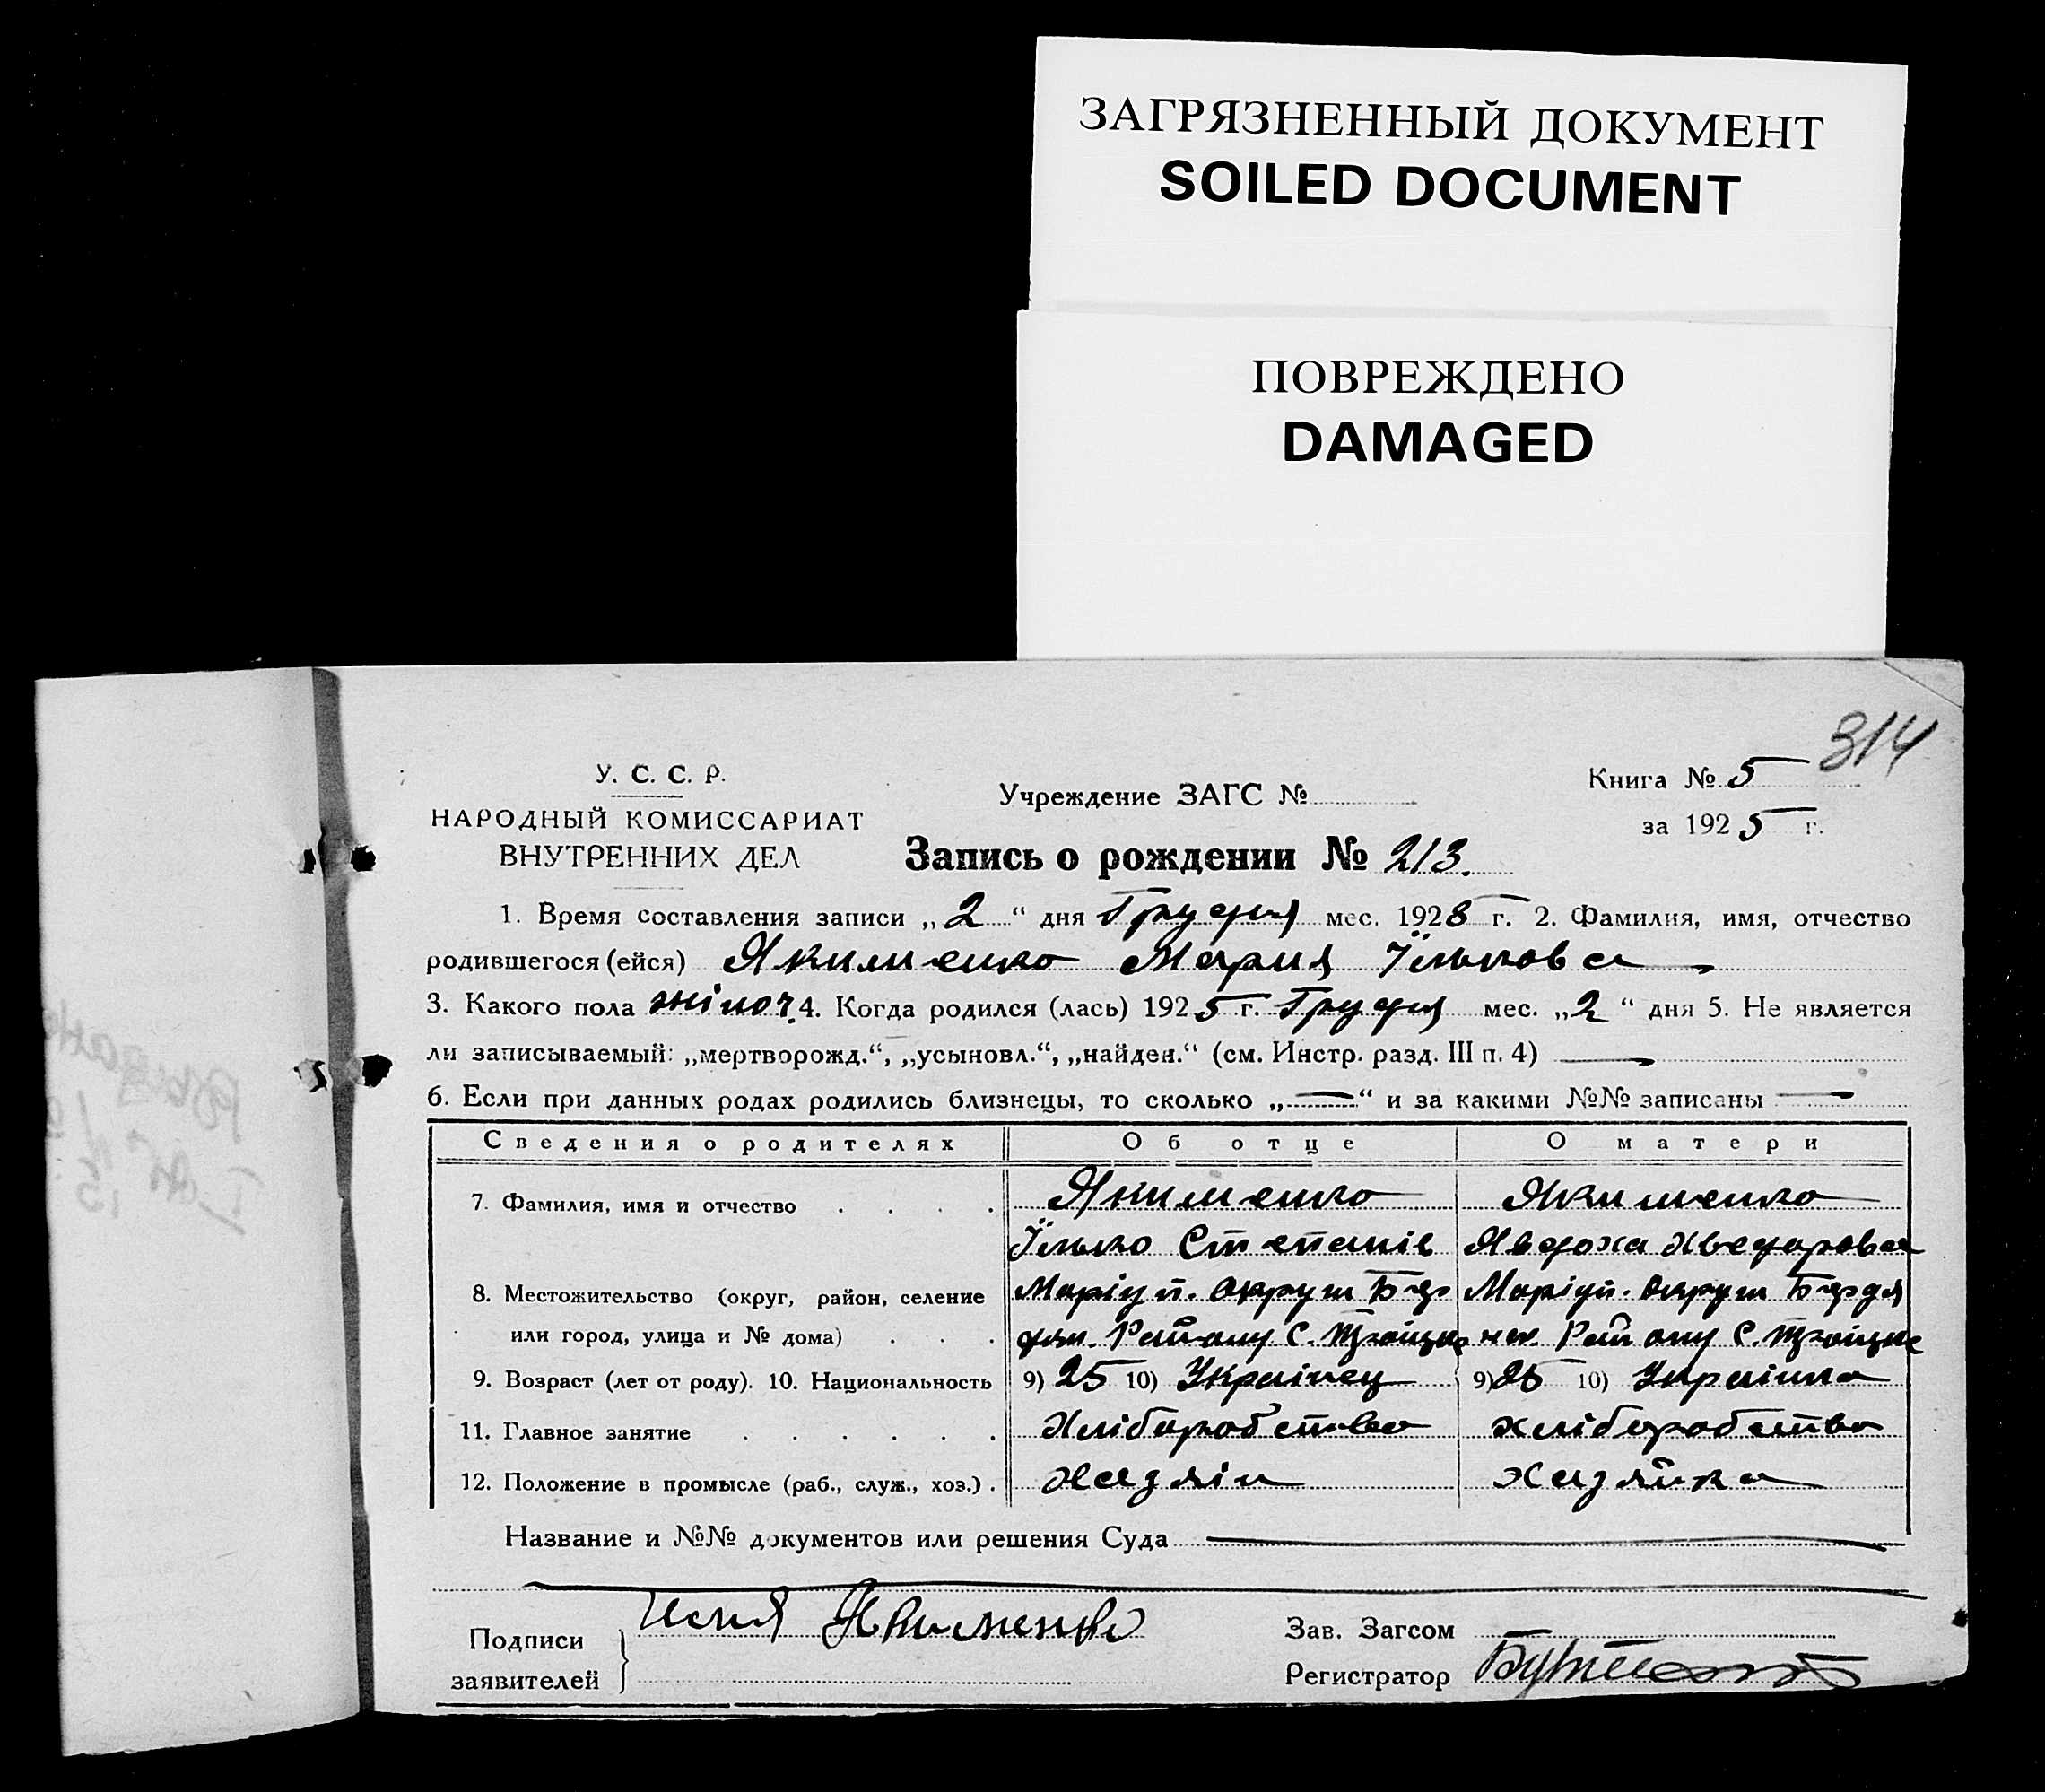 ЗАГРЯЗНЕННЫЙ ДОКУМЕНТ
SOILED DOCUMENT
ПОВРЕЖДЕНО
DAMAGED
314
У. С. С. Р.
НАРОДНЫЙ КОМИССАРИАТ
ВНУТРЕННИХ ДЕЛ
Учреждение ЗАГС №
Книга № 5
за 1925 г.
Запись о рождении № 213.
1. Время составления записи „2“ дня Грудня мес. 1928 г. 2. Фамилия, имя, отчество
родившегося (ейся) Якименко Мария Їльковa
3. Какого пола жіноч. 4. Когда родился (лась) 1925 г. Грудня мес. „2“ дня 5. Не является
ли записываемый: „мертворожд.“, „усыновл.“, „найден.“ (см. Инстр. разд. III п. 4) —
6. Если при данных родах родились близнецы, то сколько „—“ и за какими №№ записаны —
Сведения о родителях Об отце О матери
7. Фамилия, имя и отчество . . . . Якименко Якименко
Їлько Степанів Явдоха Хведоровa
8. Местожительство (округ, район, селение Маріуп. Округи Бер Маріуп. Округи Бердя
или город, улица и № дома) . . . дян. Району С. Троїцке нск. Району С. Троїцке
9. Возраст (лет от роду). 10. Национальность 9) 25 10) Українец 9) 25 10) Українка
11. Главное занятие . . . . . . Хліборобство хліборобство
12. Положение в промысле (раб., служ., хоз.) . Хазяін хазяйка
Название и №№ документов или решения Суда
Подписи
заявителей
Илия Якименко
Зав. Загсом
Регистратор